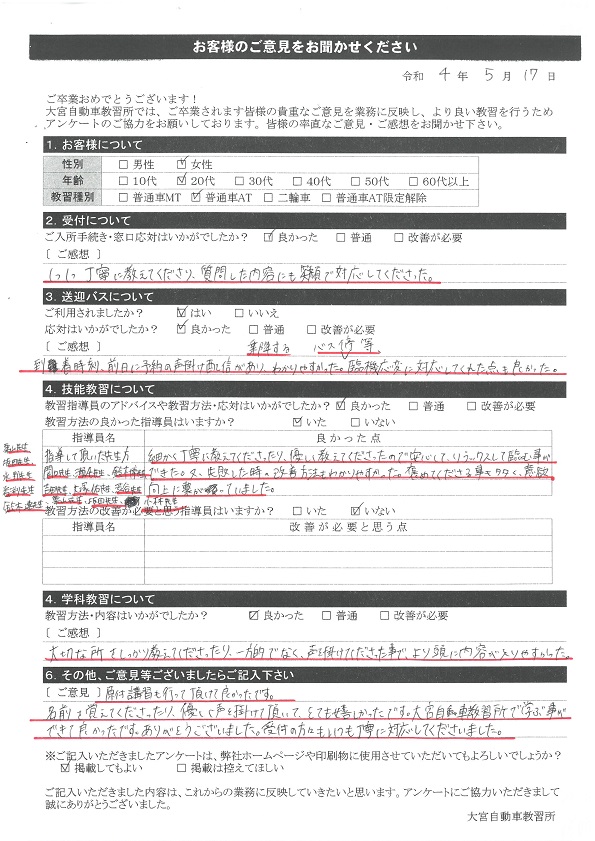 お客様のご意見をお聞かせください
令和 4 年 5 月 17 日
ご卒業おめでとうございます！
大宮自動車教習所では、ご卒業されます皆様の貴重なご意見を業務に反映し、より良い教習を行うため
アンケートのご協力をお願いしております。皆様の率直なご意見・ご感想をお聞かせ下さい。
1. お客様について
性別 □男性 ☑女性
年齢 □10代 ☑20代 □30代 □40代 □50代 □60代以上
教習種別 □普通車MT ☑普通車AT □二輪車 □普通車AT限定解除
2. 受付について
ご入所手続き・窓口応対はいかがでしたか？ ☑良かった □普通 □改善が必要
[ ご感想 ]
1つ1つ丁寧に教えてくださり、質問した内容にも笑顔で対応してくださった。
3. 送迎バスについて
ご利用されましたか？ ☑はい □いいえ
応対はいかがでしたか？ ☑良かった □普通 □改善が必要
[ ご感想 ] 乗降する バス停等、
到着時刻、前日に予約の声掛け配信があり、わかりやすかった。臨機応変に対応してくれた点も良かった。
4. 技能教習について
教習指導員のアドバイスや教習方法・応対はいかがでしたか？ ☑良かった □普通 □改善が必要
教習方法の良かった指導員はいますか？ ☑いた □いない
指導員名 良かった点
指導して頂いた先生方 細かく丁寧に教えてくださったり、優しく教えてくださったので安心して、リラックスして臨む事が
できた。又、失敗した時の改善方法もわかりやすかった。褒めてくださる事も多く、意欲
向上に繋がっていました。
教習方法の改善が必要と思う指導員はいますか？ □いた ☑いない
指導員名 改善が必要と思う点
4. 学科教習について
教習方法・内容はいかがでしたか？ ☑良かった □普通 □改善が必要
[ ご感想 ]
大切な所をしっかり教えてくださったり、一方的でなく、声を掛けてくださった事で、より頭に内容が入りやすかった。
6. その他、ご意見等ございましたらご記入下さい
[ ご意見 ] 届付講習も行って頂けて良かったです。
名前を覚えてくださったり、優しく声を掛けて頂いて、とても嬉しかったです。大宮自動車教習所で学ぶ事が
できて良かったです。ありがとうございました。受付の方々もいつも丁寧に対応してくださいました。
※ご記入いただきましたアンケートは、弊社ホームページや印刷物に使用させていただいてもよろしいでしょうか？
☑掲載してもよい □掲載は控えてほしい
ご記入いただきました内容は、これからの業務に反映していきたいと思います。アンケートにご協力いただきまして
誠にありがとうございました。
大宮自動車教習所